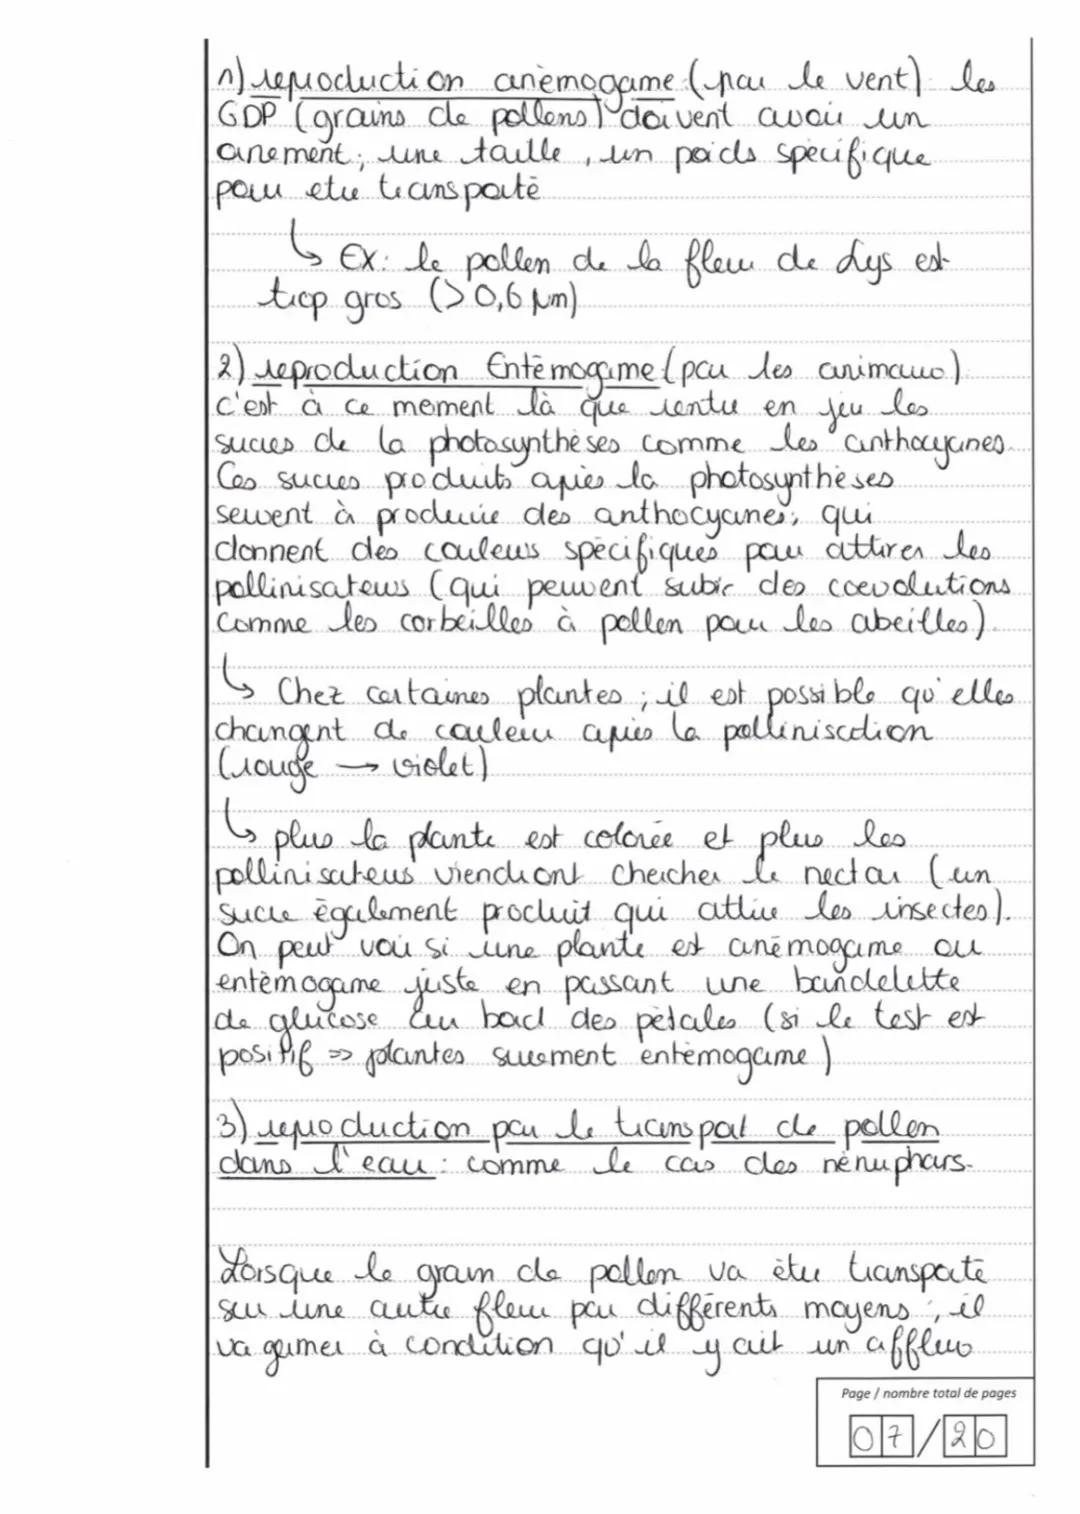 1) reproduction anémogame (par le vent) les
GDP (grains de pollens) doivent avoir un
ornement ; une taille, un poids spécifique
pour etre transporté
↳ Ex: le pollen de la fleur de Lys est
trop gros (> 0,6 µm)
2) reproduction Entémogame (par les animaux)
c'est à ce moment là que rentre en jeu les
sucres de la photosynthèses comme les anthocyanes.
Ces sucres produits après la photosynthèses
servent à produire des anthocyanes, qui
donnent des couleurs spécifiques pour attirer les
pollinisateurs (qui peuvent subir des coevolutions
comme les corbeilles à pollen pour les abeilles).
↳ Chez certaines plantes ; il est possible qu'elles
changent de couleur après la pollinisation
(rouge → violet)
↳ plus la plante est colorée et plus les
pollinisateurs viendront chercher le nectar (un
sucre également produit qui attire les insectes).
On peut voir si une plante est anémogame ou
entémogame juste en passant une bandelette
de glucose au bord des pétales (si le test est
positif => plantes surement entémogame)
3) reproduction par le transpot de pollen
dans l'eau : comme le cas des nénuphars.
Lorsque le grain de pollen va être transporté
sur une autre fleur par différents moyens ; il
va germer à condition qu'il y ait un afflux
Page / nombre total de pages
07/20